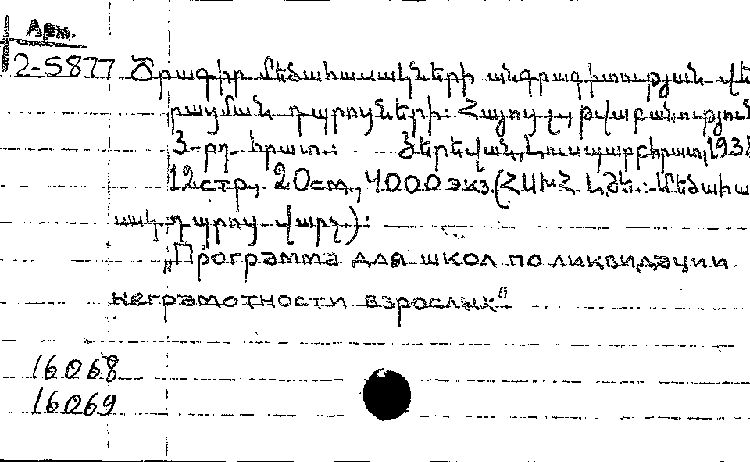 Арм.
2-5877 Ծրագիր մեծահասակների անգրագիտության վե
րացման դպրոցների: Հայոց լ., թվաբանություն
3-րդ հրատ.: Յերեվան, Լուսպարբհրատ, 193
12стр., 20см., 4000экз. (ՀՍԽՀ Լժկ.: Մեծահա
սակ. դպրոց. վարչ.):
„Программа для школ по ликвидации
неграмотности взрослых"
16068
16069